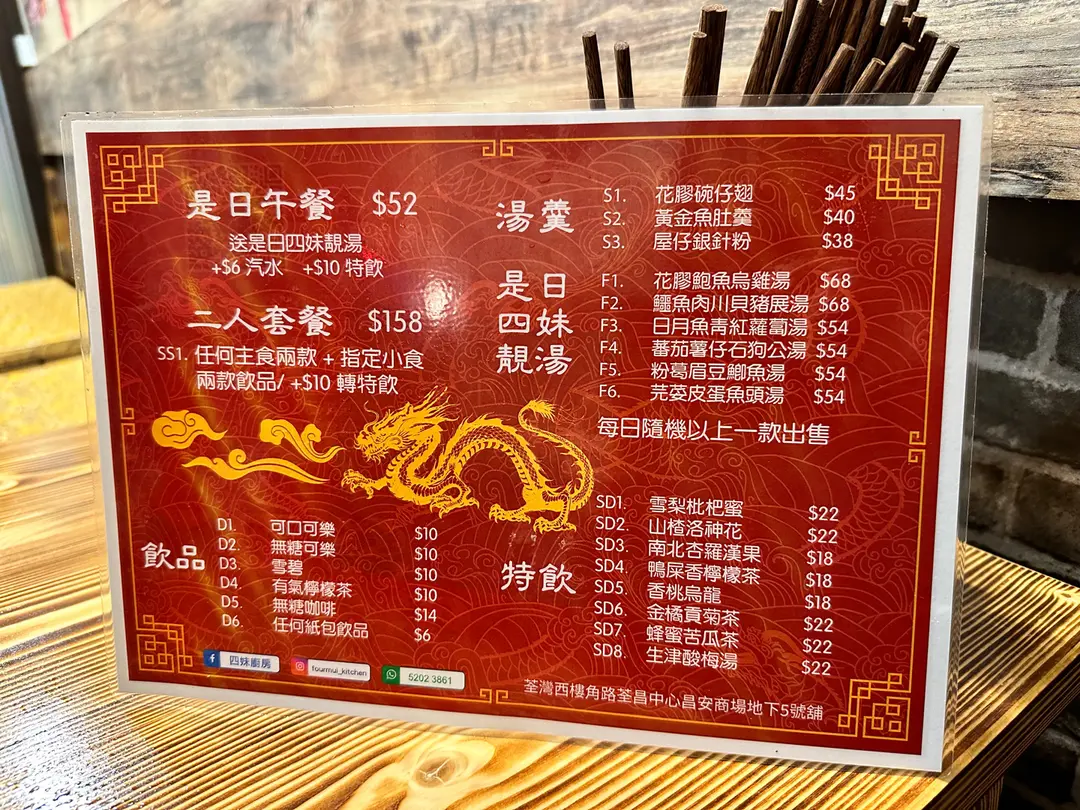 是日午餐 $52
送是日四妹靚湯
+$6 汽水 +$10 特飲
二人套餐 $158
SS1. 任何主食兩款 + 指定小食
兩款飲品/ +$10 轉特飲
湯羹
S1. 花膠碗仔翅 $45
S2. 黃金魚肚羹 $40
S3. 屋仔銀針粉 $38
是日
四妹
靚湯
F1. 花膠鮑魚烏雞湯 $68
F2. 鱷魚肉川貝豬展湯 $68
F3. 日月魚青紅蘿蔔湯 $54
F4. 蕃茄薯仔石狗公湯 $54
F5. 粉葛眉豆鯽魚湯 $54
F6. 芫荽皮蛋魚頭湯 $54
每日隨機以上一款出售
飲品
D1. 可口可樂 $10
D2. 無糖可樂 $10
D3. 雪碧 $10
D4. 有氣檸檬茶 $10
D5. 無糖咖啡 $14
D6. 任何紙包飲品 $6
特飲
SD1. 雪梨枇杷蜜 $22
SD2. 山楂洛神花 $22
SD3. 南北杏羅漢果 $18
SD4. 鴨屎香檸檬茶 $18
SD5. 香桃烏龍 $18
SD6. 金橘貢菊茶 $22
SD7. 蜂蜜苦瓜茶 $22
SD8. 生津酸梅湯 $22
四妹廚房
fourmui_kitchen
5202 3861
荃灣西樓角路荃昌中心昌安商場地下5號舖